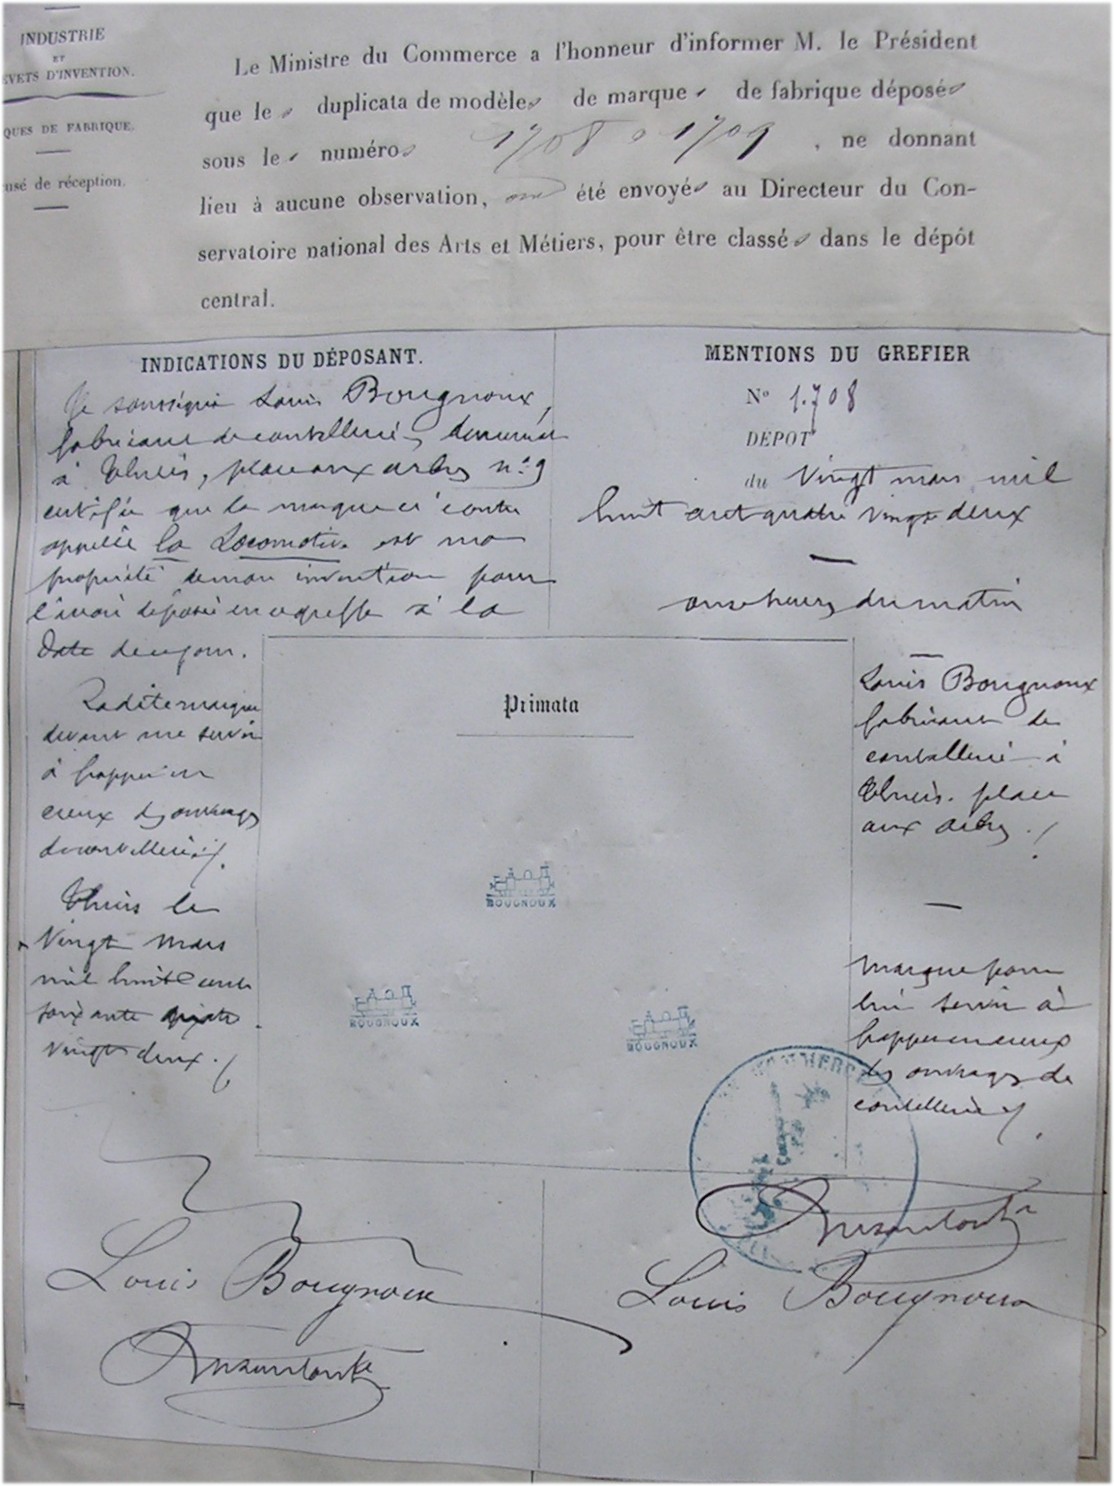 INDUSTRIE
ET
EVETS D'INVENTION.
QUES DE FABRIQUE.
usé de réception.
Le Ministre du Commerce a l'honneur d'informer M. le Président
que le s duplicata de modèles de marque s de fabrique déposés
sous le s numéros 1708 & 1709, ne donnant
lieu à aucune observation, ont été envoyés au Directeur du Con-
servatoire national des Arts et Métiers, pour être classés dans le dépôt
central.
INDICATIONS DU DÉPOSANT.
Je soussigné Louis Bougnoux,
fabricant de coutellerie, demeurant
à Thiers, place aux arbres n° 9
certifie que la marque ci contre
appelée la Locomotive est ma
propriété de mon invention pour
l'avoir déposée en ce greffe à la
date de ce jour.
Ladite marque
devant me servir
à frapper en
creux des ouvrages
de coutellerie.
Thiers le
Vingt mars
mil huit cent
soixante
vingt deux.
MENTIONS DU GREFIER
N° 1.708
DÉPOT
du Vingt mars mil
huit cent quatre vingt deux
onze heures du matin
Louis Bougnoux
fabricant de
coutellerie à
Thiers. place
aux arbres.
marque pour
lui servir à
frapper en creux
des ouvrages de
coutellerie
Primata
BOUGNOUX
BOUGNOUX
BOUGNOUX
COMMERCE
Louis Bougnoux
Louis Bougnoux